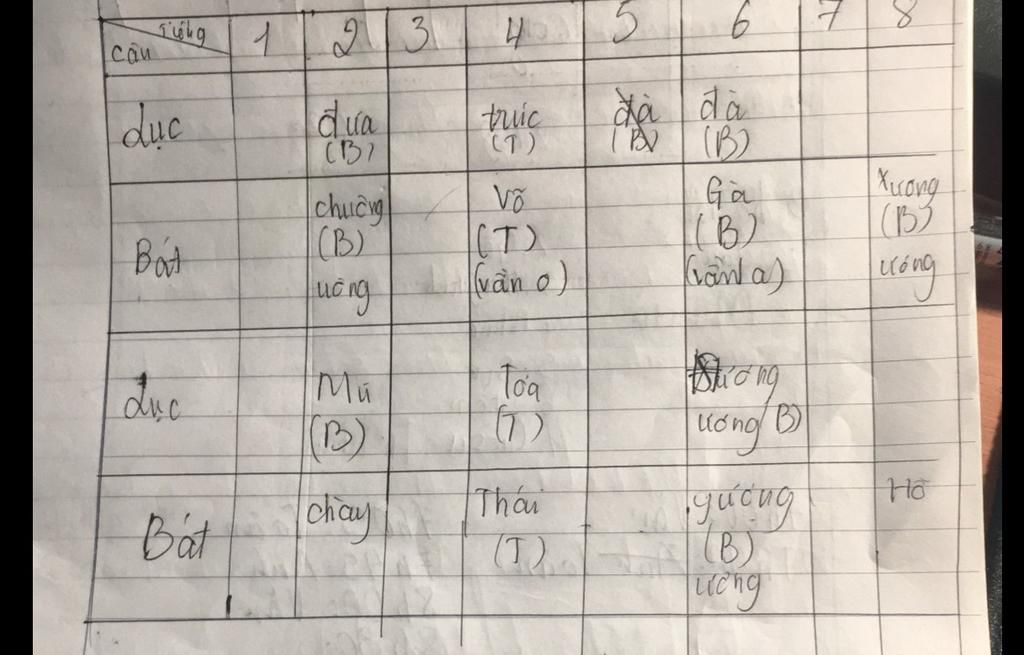 Tiếng
Câu
1 2 3 4 5 6 7 8
Lục
đưa
(B)
trúc
(T)
đà
(B)
Bát
chuông
(B)
uông
Võ
(T)
(vần o)
Gà
(B)
(vần a)
Xương
(B)
ương
Lục
Mù
(B)
Tỏa
(T)
ương
ương (B)
Bát
chày
Thái
(T)
gương
(B)
ương
Hồ